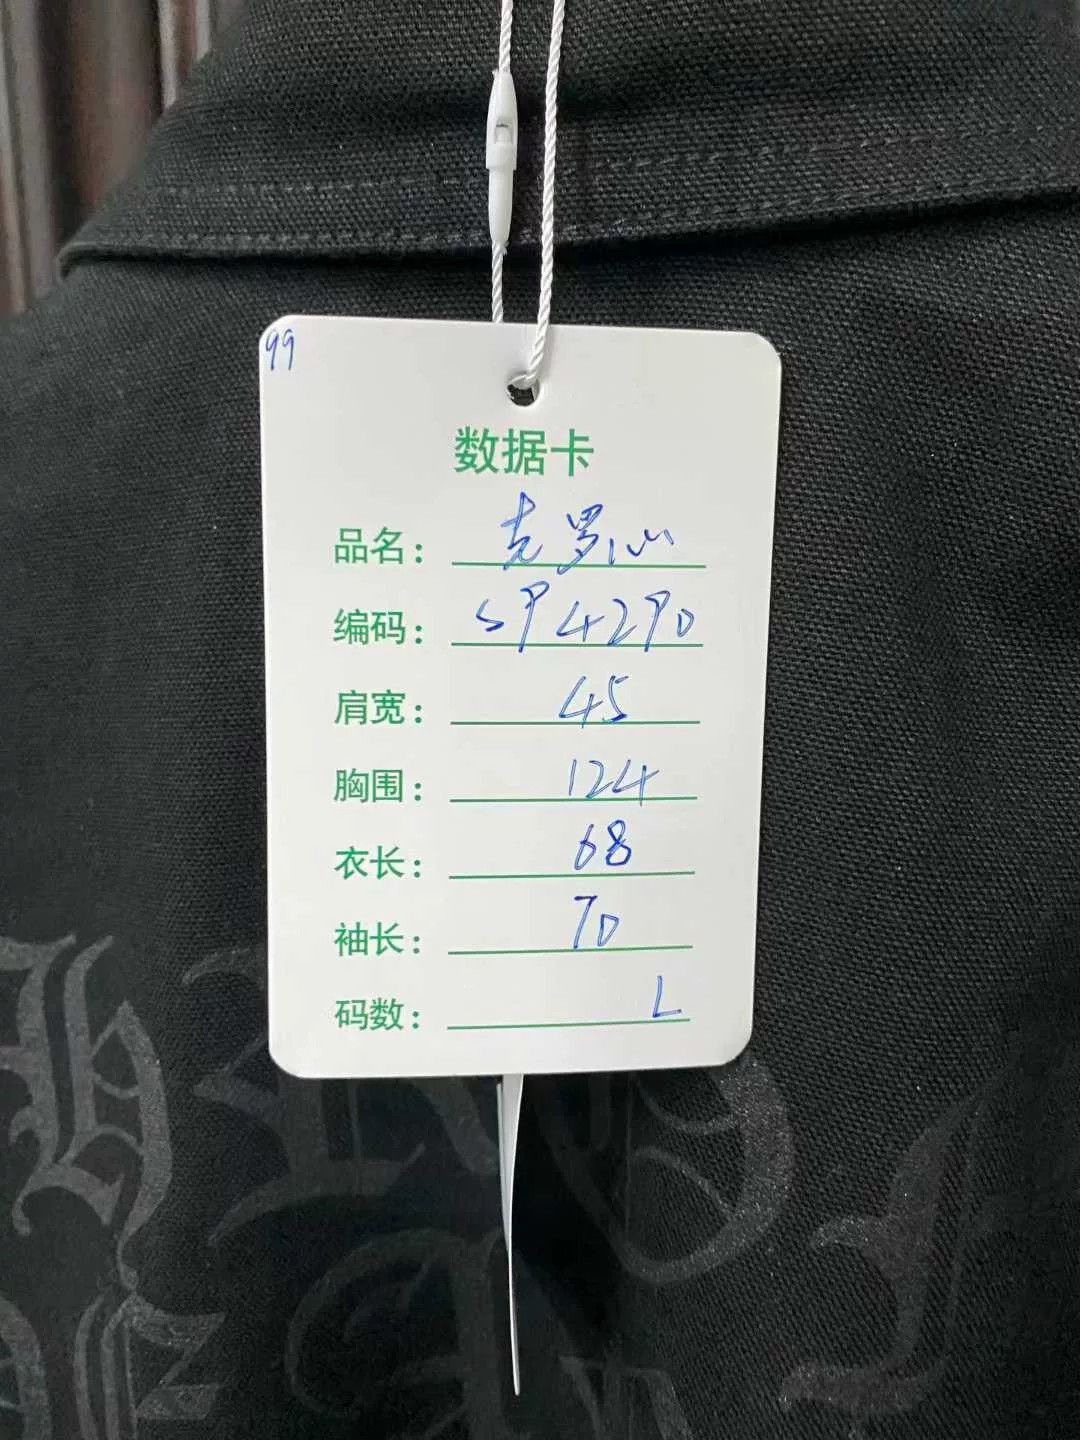 99
数据卡
品名：克罗心
编码：SP4290
肩宽：45
胸围：124
衣长：68
袖长：70
码数：L